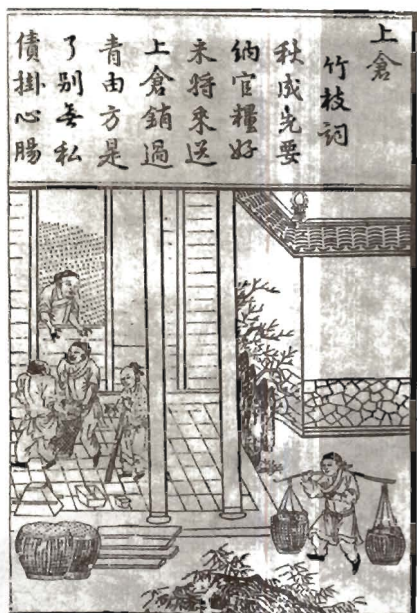 上倉
竹枝詞
秋成先要
納官糧好
米將來送
上倉銷過
青由方是
了別無私
債掛心腸